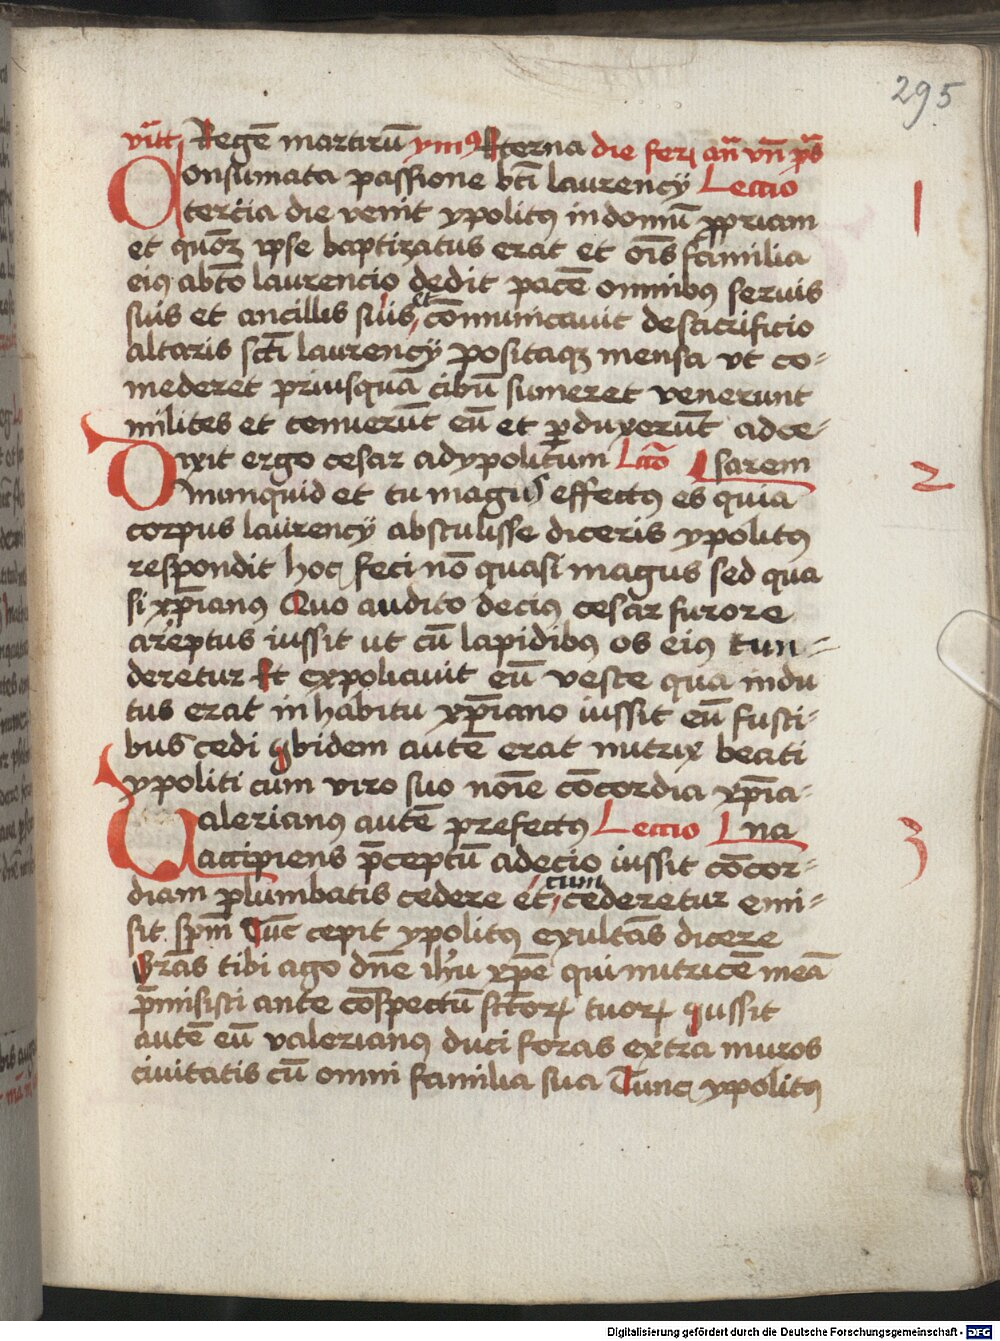 295
vitt Regē martirū ymꝰ Eterna die feri añ vn̄ ps
Consumata passione bti laurencÿ Leccio
tercia die venit ypolitꝰ in domū ꝓpriam 1
et quoꝫ ipse baptizatus erat et oīs familia
eiꝰ abto laurencio dedit pacē omnibꝰ seruis
suis et ancillis suis et cōmunicauit de sacrificio
altaris scti laurencÿ positaqꝫ mensa vt co-
mederet priusquā cibū sumeret venerunt
milites et tenuerūt eū et ꝑduxerūt ad ce-
Dixit ergo cesar ad ypolitum Lcō sarem 2
nunquid et tu magus effectꝰ es quia
corpus laurencÿ abstulisse diceris ypolitꝰ
respondit hoc feci nō quasi magus sed qua
si xp̄ianꝰ Quo audito deciꝰ cesar furore
areptus iussit ut cū lapidibꝰ os eiꝰ tun-
deretur Et expoliauit eū veste qua indu
tus erat in habitu xp̄iano iussit eū fusti-
bus cedi ybidem autē erat nutrix beati
ypoliti cum viro suo noīe cōcordia xp̄ia-
Valerianꝰ autē prefectꝰ Leccio na 3
accipiens p̄ceptū a decio iussit cōcor-
diam plumbatis cedere et cum cederetur emi-
sit spm̄ Tūc cepit ypolitꝰ exultās dicere
Grās tibi ago dn̄e ihū xp̄e qui nutricē meā
p̄misisti ante cōspectū sctorꝝ tuorꝝ iussit
autē eū valerianꝰ duci foras extra muros
ciuitatis cū omni familia sua Tunc ypolitꝰ
Digitalisierung gefördert durch die Deutsche Forschungsgemeinschaft - DFG